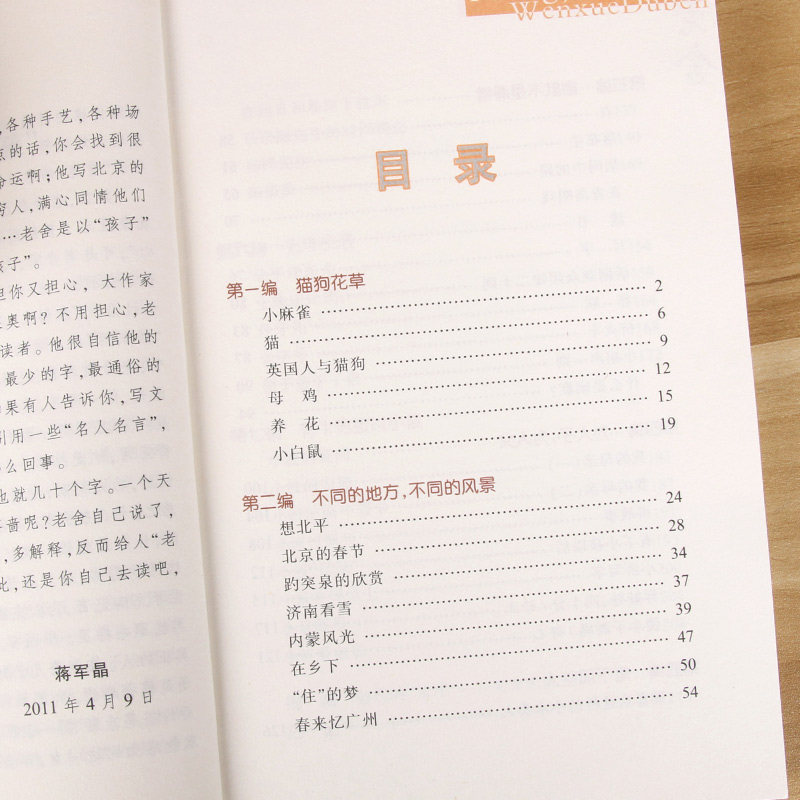 ,各种手艺,各种场
点的话,你会找到很
命运啊;他写北京的
穷人,满心同情他们
…老舍是以“孩子”
孩子”。
但你又担心, 大作家
奥啊? 不用担心,老
读者。他很自信他的
最少的字,最通俗的
如果有人告诉你,写文
引用一些“名人名言”,
么回事。
也就几十个字。一个天
啬呢?老舍自己说了,
,多解释,反而给人“老
此,还是你自己去读吧,
蒋军晶
2011年4月9日
WenxueDuben
目 录
第一编 猫狗花草
小麻雀 …… 2
猫 …… 6
英国人与猫狗 …… 9
母 鸡 …… 12
养 花 …… 15
小白鼠 …… 19
第二编 不同的地方,不同的风景
想北平 …… 24
北京的春节 …… 28
趵突泉的欣赏 …… 34
济南看雪 …… 37
内蒙风光 …… 39
在乡下 …… 47
“住”的梦 …… 50
春来忆广州 …… 54